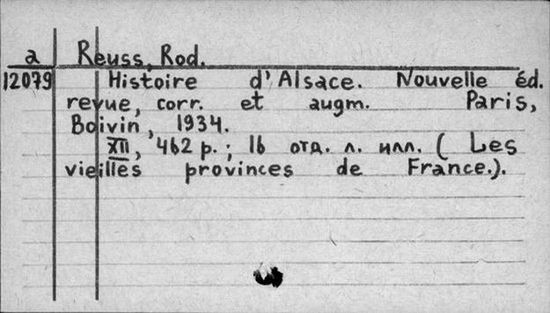 a Reuss, Rod.
12079 Histoire d'Alsace. Nouvelle éd.
revue, corr. et augm. Paris,
Boivin, 1934.
XII, 462 p.; 16 отд. л. илл. (Les
vieilles provinces de France.).